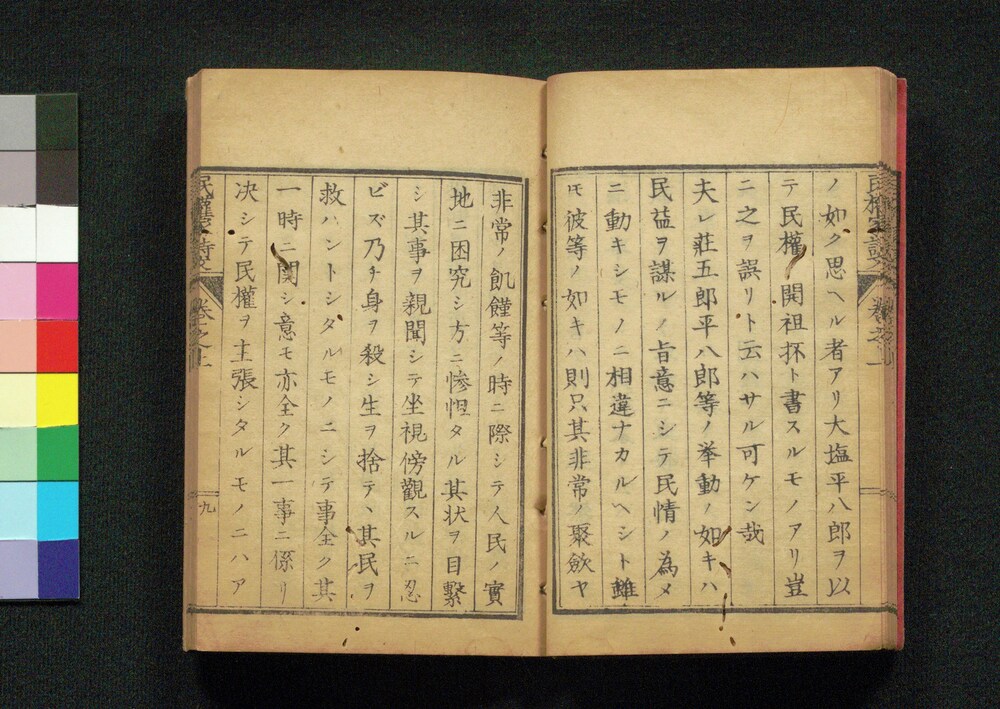 ノ如ク思ヘル者アリ大塩平八郎ヲ以
テ民權ノ開祖抔ト書スルモノアリ豈
ニ之ヲ誤リト云ハサル可ケン哉
夫レ莊五郎平八郎等ノ挙動ノ如キハ
民益ヲ謀ルノ旨意ニシテ民情ノ為メ
ニ動キシモノニ相違ナカルヘシト雖
モ彼等ノ如キハ則只其非常ノ聚斂ヤ
非常ノ飢饉等ノ時ニ際シテ人民ノ實
地ニ困究シ方ニ慘怛タル其状ヲ目繋
シ其事ヲ親聞シテ坐視傍觀スルニ忍
ビズ乃チ身ヲ殺シ生ヲ捨テヽ其民ヲ
救ハントシタルモノニシテ事全ク其
一時ニ関シ意モ亦全ク其一事ニ係リ
决シテ民權ヲ主張シタルモノニハア
九